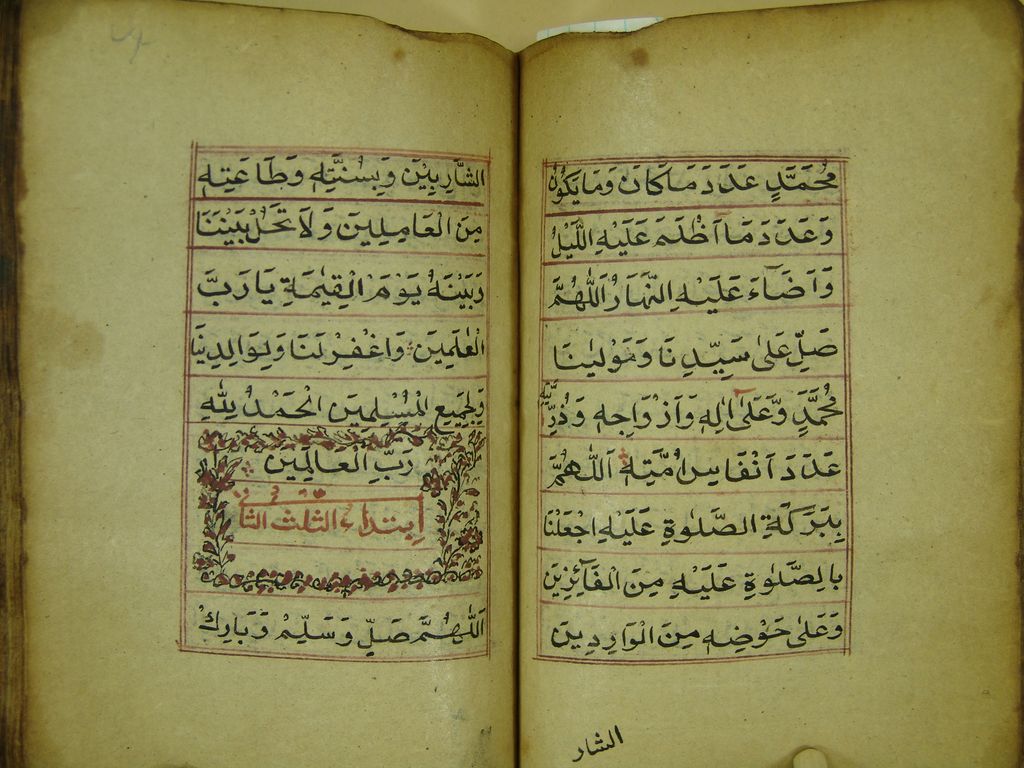 مُحَمَّدٍ عَدَدَ مَا كَانَ وَمَا يَكُونُ
وَعَدَدَ مَا اَظْلَمَ عَلَيْهِ اللَّيْلُ
وَاَضَاءَ عَلَيْهِ النَّهَارُ اَللّٰهُمَّ
صَلِّ عَلٰى سَيِّدِنَا وَمَوْلٰينَا
مُحَمَّدٍ وَعَلٰى اٰلِهِ وَاَزْوَاجِهِ وَذُرِّيَّتِهِ
عَدَدَ اَنْفَاسِ اُمَّتِهِ اَللّٰهُمَّ
بِبَرَكَةِ الصَّلٰوةِ عَلَيْهِ اجْعَلْنَا
بِالصَّلٰوةِ عَلَيْهِ مِنَ الْفَآئِزِينَ
وَعَلٰى حَوْضِهِ مِنَ الْوَارِدِينَ
الشار
الشَّارِبِيْنَ وَبِسُنَّتِهِ وَطَاعَتِهِ
مِنَ الْعَامِلِينَ وَلَا تَحُلْ بَيْنَنَا
وَبَيْنَهُ يَوْمَ الْقِيٰمَةِ يَا رَبَّ
الْعٰلَمِينَ وَاغْفِرْ لَنَا وَلِوَالِدِينَا
وَلِجَمِيعِ الْمُسْلِمِينَ اَلْحَمْدُ لِلّٰهِ
رَبِّ الْعَالَمِينَ
اِبتداء الثلث الثانى
اَللّٰهُمَّ صَلِّ وَسَلِّمْ وَبَارِكْ